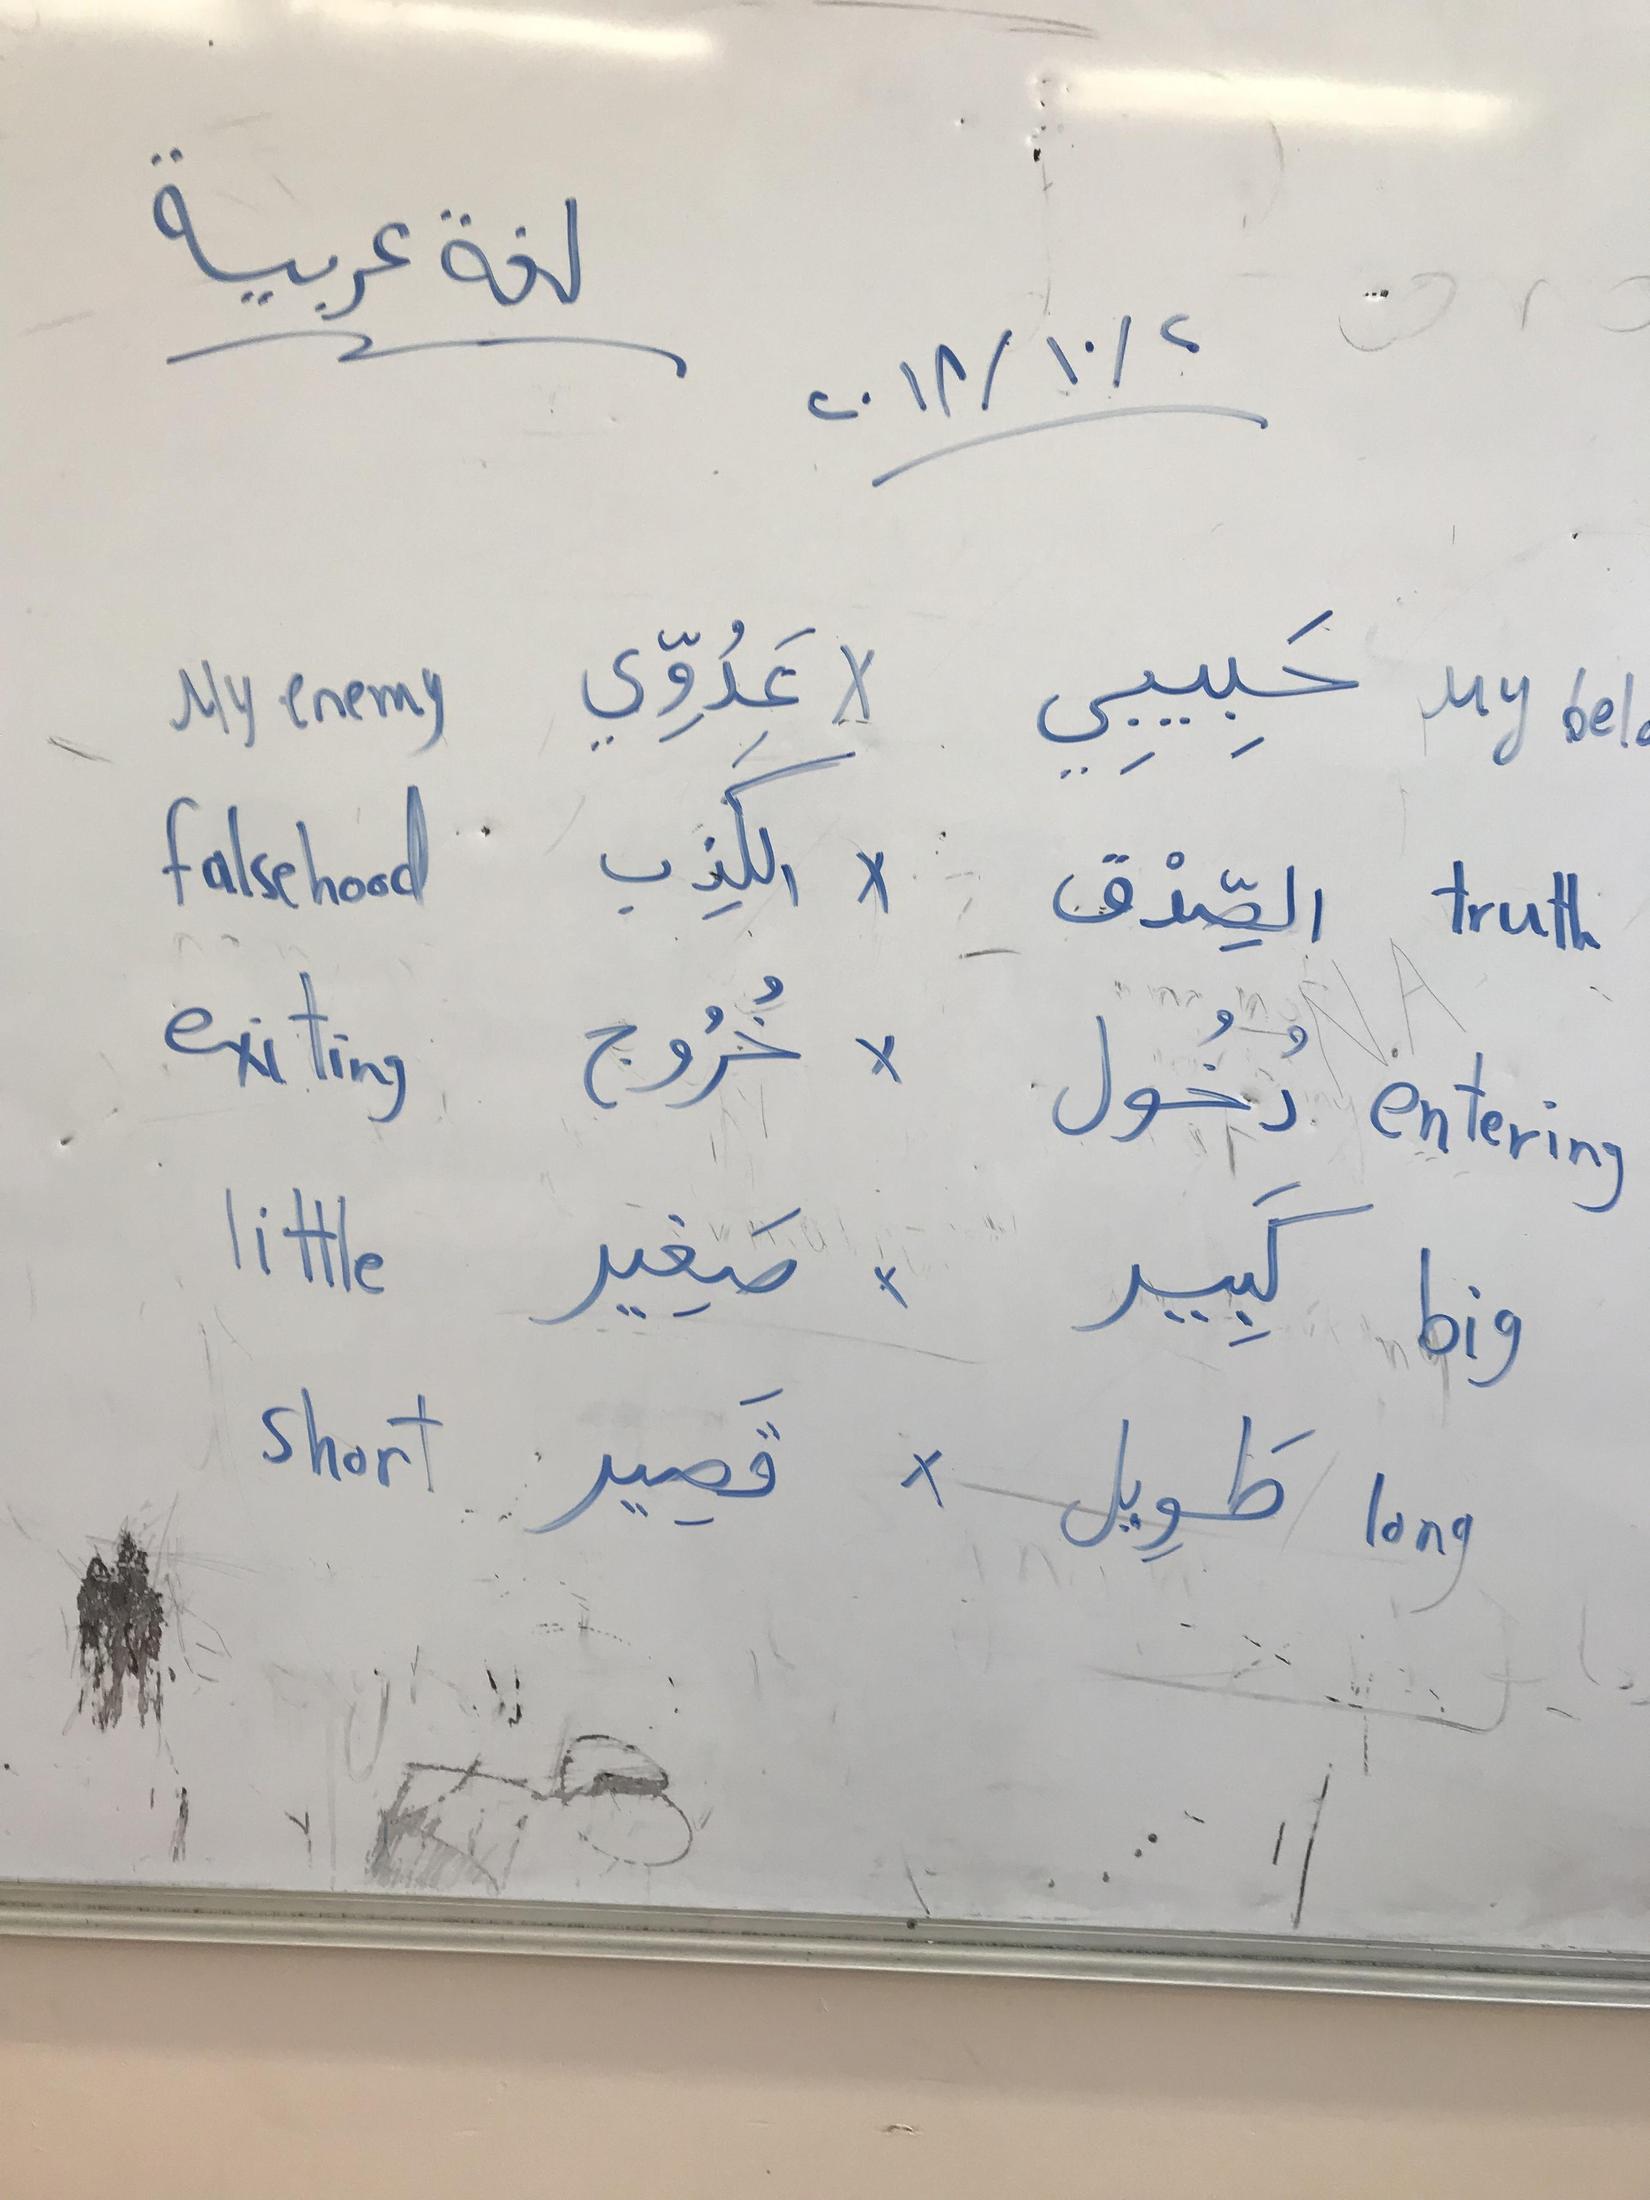 لغة عربية
٢٠١٨/١٠/٢
My حَبِيبِي X عَدُوِّي My enemy
truth الصِّدْق X الكَذِب falsehood
entering دُخُول X خُرُوج exiting
big كَبِير X صَغِير little
long طَوِيل X قَصِير short